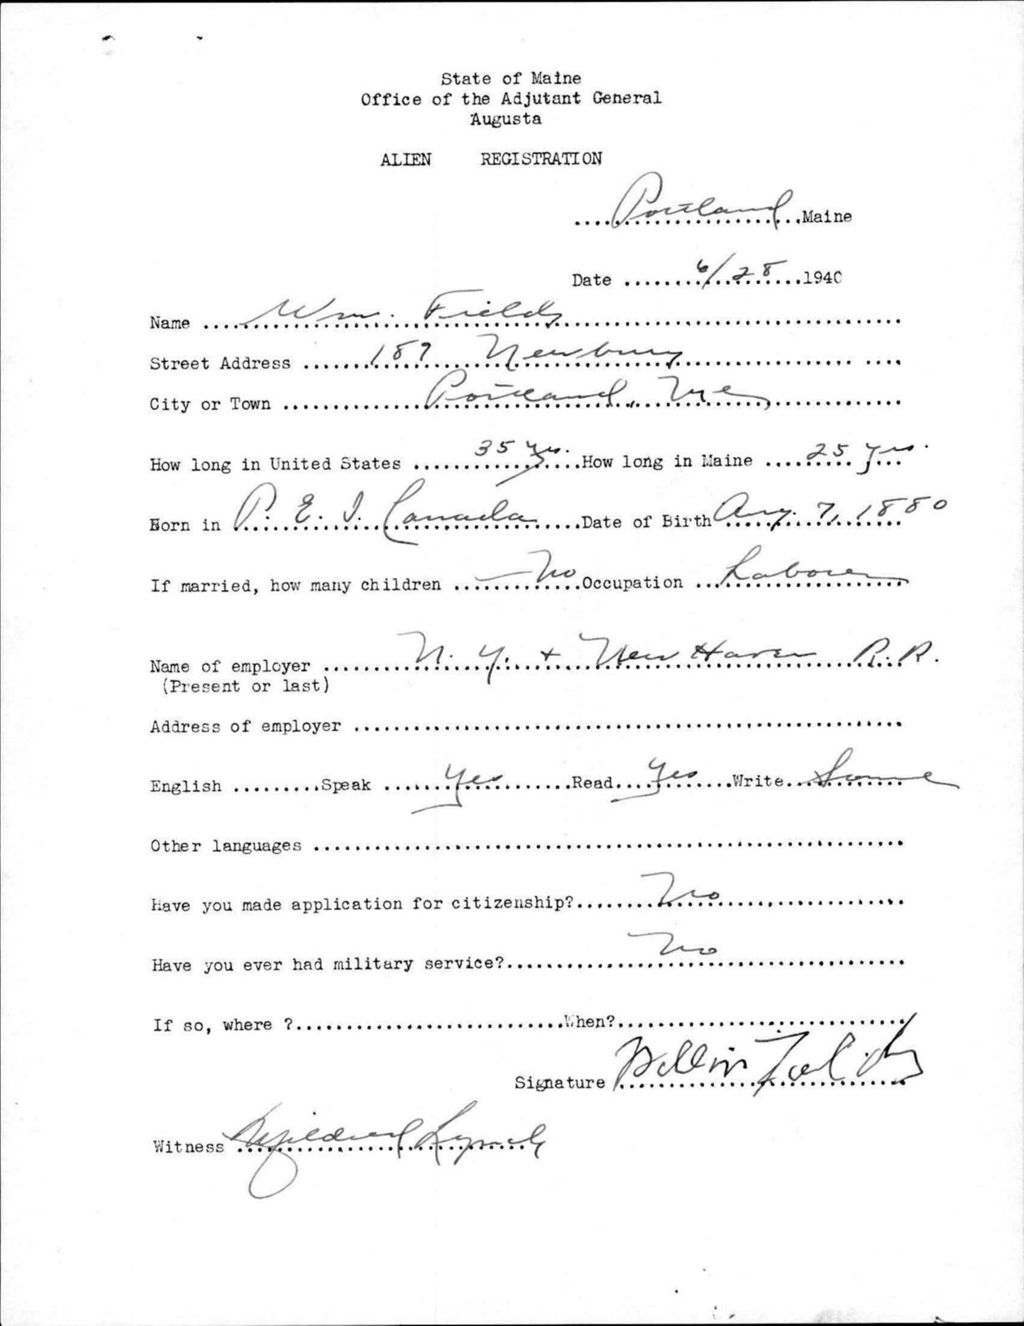 State of Maine
Office of the Adjutant General
Augusta
ALIEN REGISTRATION
....Portland....Maine
Date ....6/28....1940
Name ....Wm. Fields....
Street Address ....187 Newbury....
City or Town ....Portland, Me....
How long in United States ....35 yrs.....How long in Maine ....25 yrs.
Born in P. E. I. Canada.....Date of Birth Aug. 7, 1880
If married, how many children ....No....Occupation ...Laborer
Name of employer ....N. Y. + New Haven R.R.
(Present or last)
Address of employer ....
English .........Speak ....Yes....Read....Yes....Write...Some
Other languages ....
Have you made application for citizenship?....No....
Have you ever had military service?....No....
If so, where ?....When?....
Signature William Fields
Witness Mildred Lynch